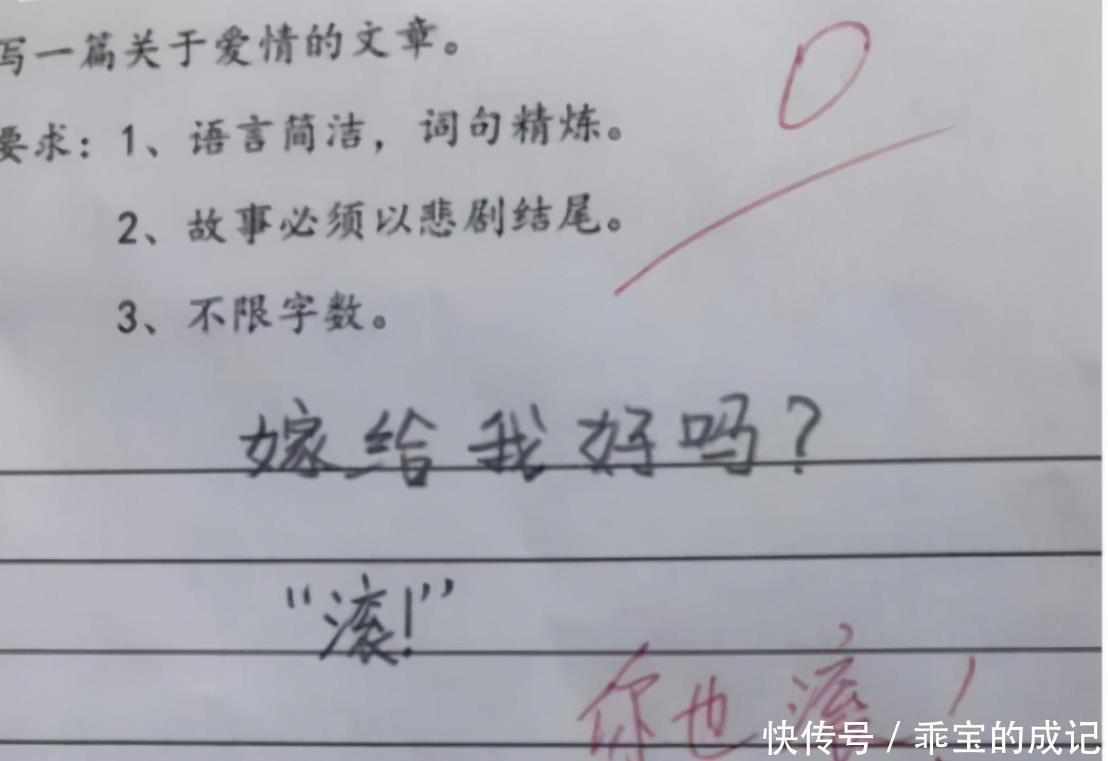 写一篇关于爱情的文章。
0
要求：1、语言简洁，词句精炼。
2、故事必须以悲剧结尾。
3、不限字数。
嫁给我好吗？
“滚！”
你也滚！
快传号 / 乖宝的成记